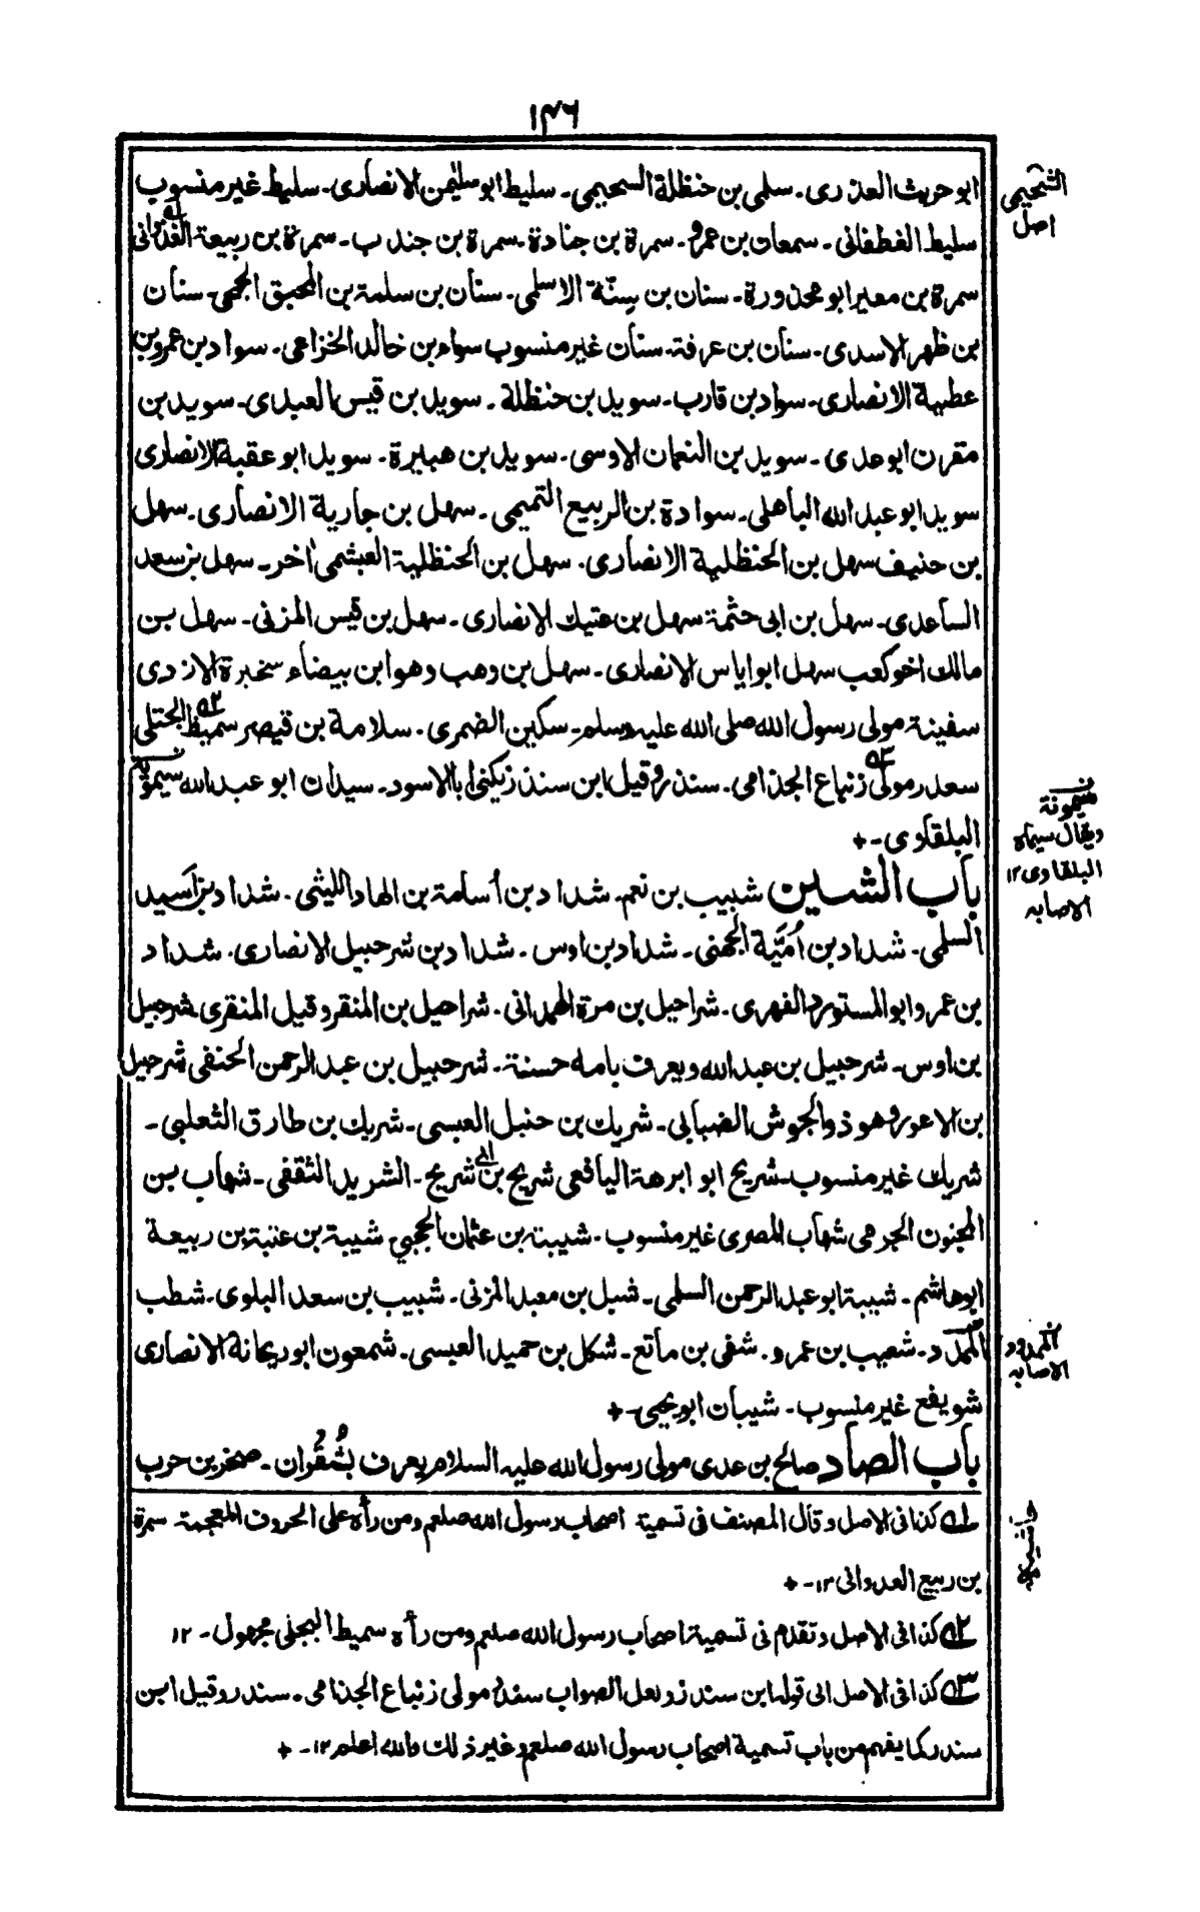 ١٣٦
ابو حريث العذرى۔ سلمى بن حنظلة السحيمى۔ سليط ابو سليمٰن الانصارى۔ سليط غير منسوب
سليط الغطفانى۔ سمعان بن عمرو۔ سمرة بن جنادة۔ سمرة بن جندب۔ سمرة بن ربيعة العدوانى ١ه
سمرة بن معير ابو محذورة۔ سنان بن سنّة الاسلمى۔ سنان بن سلمة بن المحبق الجمحى۔ سنان
بن ظهر الاسدى۔ سنان بن عرفة۔ سنان غير منسوب سواء بن خالد الخزاعى۔ سواد بن عمرو بن
عطية الانصارى۔ سواد بن قارب۔ سويد بن حنظلة۔ سويد بن قيس العبدى۔ سويد بن
مقرن ابو عدى۔ سويد بن النعمان الاوسى۔ سويد بن هبيرة۔ سويد ابو عقبة الانصارى
سويد ابو عبد الله الباهلى۔ سوادة بن الربيع التميمى۔ سهل بن جارية الانصارى۔ سهل
بن حنيف سهل بن الحنظلية الانصارى۔ سهل بن الحنظلية العبشمى اٰخر۔ سهل بن سعد
الساعدى۔ سهل بن ابى حثمة سهل بن عتيك الانصارى۔ سهل بن قيس المزنى۔ سهل بن
مالك اخو كعب سهل ابو اياس الانصارى۔ سهل بن وهب وهو ابن بيضاء سخبرة الازدى
سفينة مولى رسول الله صلى الله عليه وسلم۔ سكين الضمرى۔ سلامة بن قيصر سميط ٢ه البجلى
سعد رمولى ٣ه زنباع الجذامى۔ سندر وقيل ابن سندز يكنى ابا الاسود۔ سيدان ابو عبد الله سيمويه
البلقاوى۔+
باب الشين شبيب بن نعم۔ شداد بن اُسامة بن الهاد الليثى۔ شداد بن اَسيد
السلمى۔ شداد بن اُمَيَّة الجهنى۔ شداد بن اوس۔ شداد بن شرحبيل الانصارى۔ شداد
بن عمرو ابو المستورد الفهرى۔ شراحيل بن مرة الهمدانى۔ شراحيل بن المنقر وقيل المنقرى شرحبيل
بن اوس۔ شرحبيل بن عبد الله ويعرف بامه حسنة۔ شرحبيل بن عبد الرحمن الحنفى شرحبيل
بن الاعور وهو ذو الجوش الضبابى۔ شريك بن حنبل العبسى۔ شريك بن طارق الثعلبى۔
شريك غير منسوب۔ شريح ابو ابرهة اليافعى شريح بن ابى شريح۔ الشريد الثقفى۔ شهاب بن
المجنون الجرمى شهاب المصرى غير منسوب۔ شيبة بن عثمان الحجبى شيبة بن عتبة بن ربيعة
ابو هاشم۔ شيبة ابو عبد الرحمن السلمى۔ شبل بن معبد المزنى۔ شبيب بن سعد البلوى۔ شطب
الممدّد۔ شعيب بن عمرو۔ شفى بن ماتع۔ شكل بن حميد العبسى۔ شمعون ابو ريحانة الانصارى
شويفع غير منسوب۔ شيبان ابو يحيى۔+
باب الصاد صالح بن عدى مولى رسول الله عليه السلام يعرف بشُقْران۔ صخر بن حرب
١ه كذا فى الاصل وقال المصنف فى تسمية اصحاب رسول الله صلعم ومن رأه على الحروف المعجمة سمرة
بن ربيع العدوانى ١٢۔+
٢ه كذا فى الاصل وتقدم فى تسمية اصحاب رسول الله صلعم ومن رأه سميط البجلى مجهول۔ ١٢
٣ه كذا فى الاصل الى قوله ابن سندز ولعل الصواب سندر مولى زنباع الجذامى۔ سندر وقيل ابن
سندر كما يفهم من باب تسمية اصحاب رسول الله صلعم وغير ذلك والله اعلم ١٢۔+
الشحيمى
اصل
ن
سيمونة
ويقال سيماه
البلقاوى ١٢
الاصابه
ن
الممدود
الاصابه
حاشيه